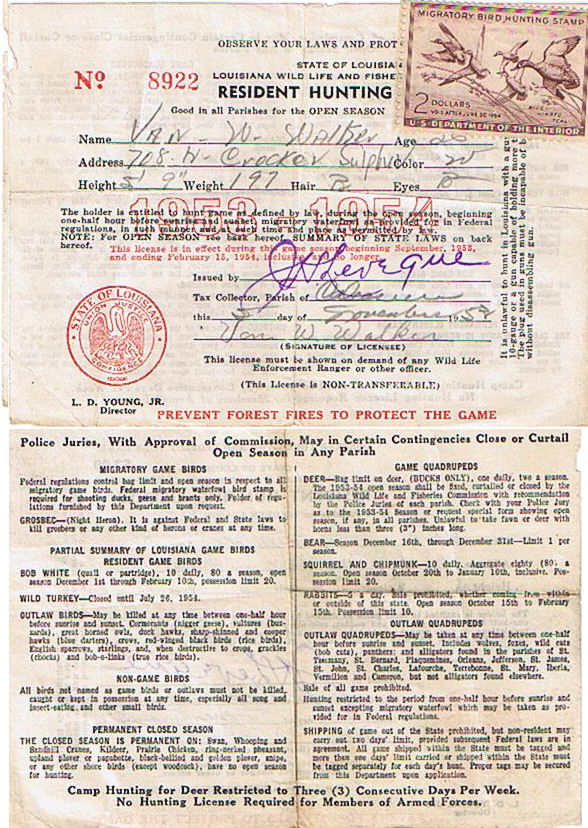 OBSERVE YOUR LAWS AND PROT
STATE OF LOUISIA
LOUISIANA WILD LIFE AND FISHE
RESIDENT HUNTING
Good in all Parishes for the OPEN SEASON
No 8922
MIGRATORY BIRD HUNTING STAMP
2 DOLLARS
VOID AFTER JUNE 30, 1954
BLUE-WINGED TEAL
U·S·DEPARTMENT OF THE INTERIOR
Name Van W. Walker Age
Address 708 N- Crocker Sulphur Color
Height 5' 9" Weight 197 Hair B Eyes B
1953 - 1954
The holder is entitled to hunt game as defined by law, during the open season, beginning
one-half hour before sunrise and sunset migratory waterfowl as provided for in Federal
regulations, in such manner and at such time and place as permitted by law.
NOTE: For OPEN SEASON see back hereof. SUMMARY OF STATE LAWS on back
hereof. This license is in effect during the game season beginning September, 1953,
and ending February 15, 1954, inclusive and no longer.
Issued by
Tax Collector, Parish of
this 5 day of November 195
W Walker
(SIGNATURE OF LICENSEE)
This license must be shown on demand of any Wild Life
Enforcement Ranger or other officer.
(This License is NON-TRANSFERABLE)
It is unlawful to hunt in Louisiana with a gun
10-gauge or a gun capable of holding more t
The plug used in guns must be incapable of b
without disassembling gun.
STATE OF LOUISIANA
UNION JUSTICE
CONFIDENCE
L. D. YOUNG, JR.
Director
PREVENT FOREST FIRES TO PROTECT THE GAME
Police Juries, With Approval of Commission, May in Certain Contingencies Close or Curtail
Open Season in Any Parish
MIGRATORY GAME BIRDS
Federal regulations control bag limit and open season in respect to all
migratory game birds. Federal migratory waterfowl bird stamp is
required for shooting ducks, geese and brants only. Folder of regu-
lations furnished by this Department upon request.
GROSBEC—(Night Heron). It is against Federal and State laws to
kill grosbecs or any other kind of herons or cranes at any time.
PARTIAL SUMMARY OF LOUISIANA GAME BIRDS
RESIDENT GAME BIRDS
BOB WHITE (quail or partridge), 10 daily, 80 a season, open
season December 1st through February 10th, possession limit 20.
WILD TURKEY—Closed until July 26, 1954.
OUTLAW BIRDS—May be killed at any time between one-half hour
before sunrise and sunset. Cormorants (nigger geese), vultures (buz-
zards), great horned owls, duck hawks, sharp-shinned and cooper
hawks (blue darters), crows, red-winged black birds (rice birds),
English sparrows, starlings, and, when destructive to crops, grackles
(chocks) and bob-o-links (true rice birds).
NON-GAME BIRDS
All birds not named as game birds or outlaws must not be killed,
caught or kept in possession at any time, especially all song and
insect-eating, and other small birds.
PERMANENT CLOSED SEASON
THE CLOSED SEASON IS PERMANENT ON: Swan, Whooping and
Sandhill Cranes, Killdeer, Prairie Chicken, ring-necked pheasant,
upland plover or papabotte, black-bellied and golden plover, snipe,
or any other shore birds (except woodcock), have no open season
for hunting.
GAME QUADRUPEDS
DEER—Bag limit on deer, (BUCKS ONLY), one daily, two a season.
The 1953-54 open season shall be fixed, curtailed or closed by the
Louisiana Wild Life and Fisheries Commission with recommendation
by the Police Juries of each parish. Check with your Police Jury
as to the 1953-54 Season or request special form showing open
season, if any, in all parishes. Unlawful to take fawn or deer with
horns less than three (3") inches long.
BEAR—Season December 16th, through December 31st—Limit 1 per
season.
SQUIRREL AND CHIPMUNK—10 daily. Aggregate eighty (80) a
season. Open season October 20th to January 10th, inclusive. Pos-
session limit 20.
RABBITS—5 a day. Sale prohibited, whether coming from within
or outside of this state. Open season October 15th to February
15th. Possession limit 10.
OUTLAW QUADRUPEDS
OUTLAW QUADRUPEDS—May be taken at any time between one-half
hour before sunrise and sunset. Includes wolves, foxes, wild cats
(bob cats), panthers; and alligators found in the parishes of St.
Tammany, St. Bernard, Plaquemines, Orleans, Jefferson, St. James,
St. John, St. Charles, Lafourche, Terrebonne, St. Mary, Iberia,
Vermilion and Cameron, but not alligators found elsewhere.
Sale of all game prohibited.
Hunting restricted to the period from one-half hour before sunrise and
sunset excepting migratory waterfowl which may be taken as pro-
vided for in Federal regulations.
SHIPPING of game out of the State prohibited, but non-resident may
carry out two days' limit, provided subsequent Federal laws are in
agreement. All game shipped within the State must be tagged and
more than one days' limit carried or shipped within the State must
be tagged separately for each day's hunt. Proper tags may be secured
from this Department upon application.
Camp Hunting for Deer Restricted to Three (3) Consecutive Days Per Week.
No Hunting License Required for Members of Armed Forces.